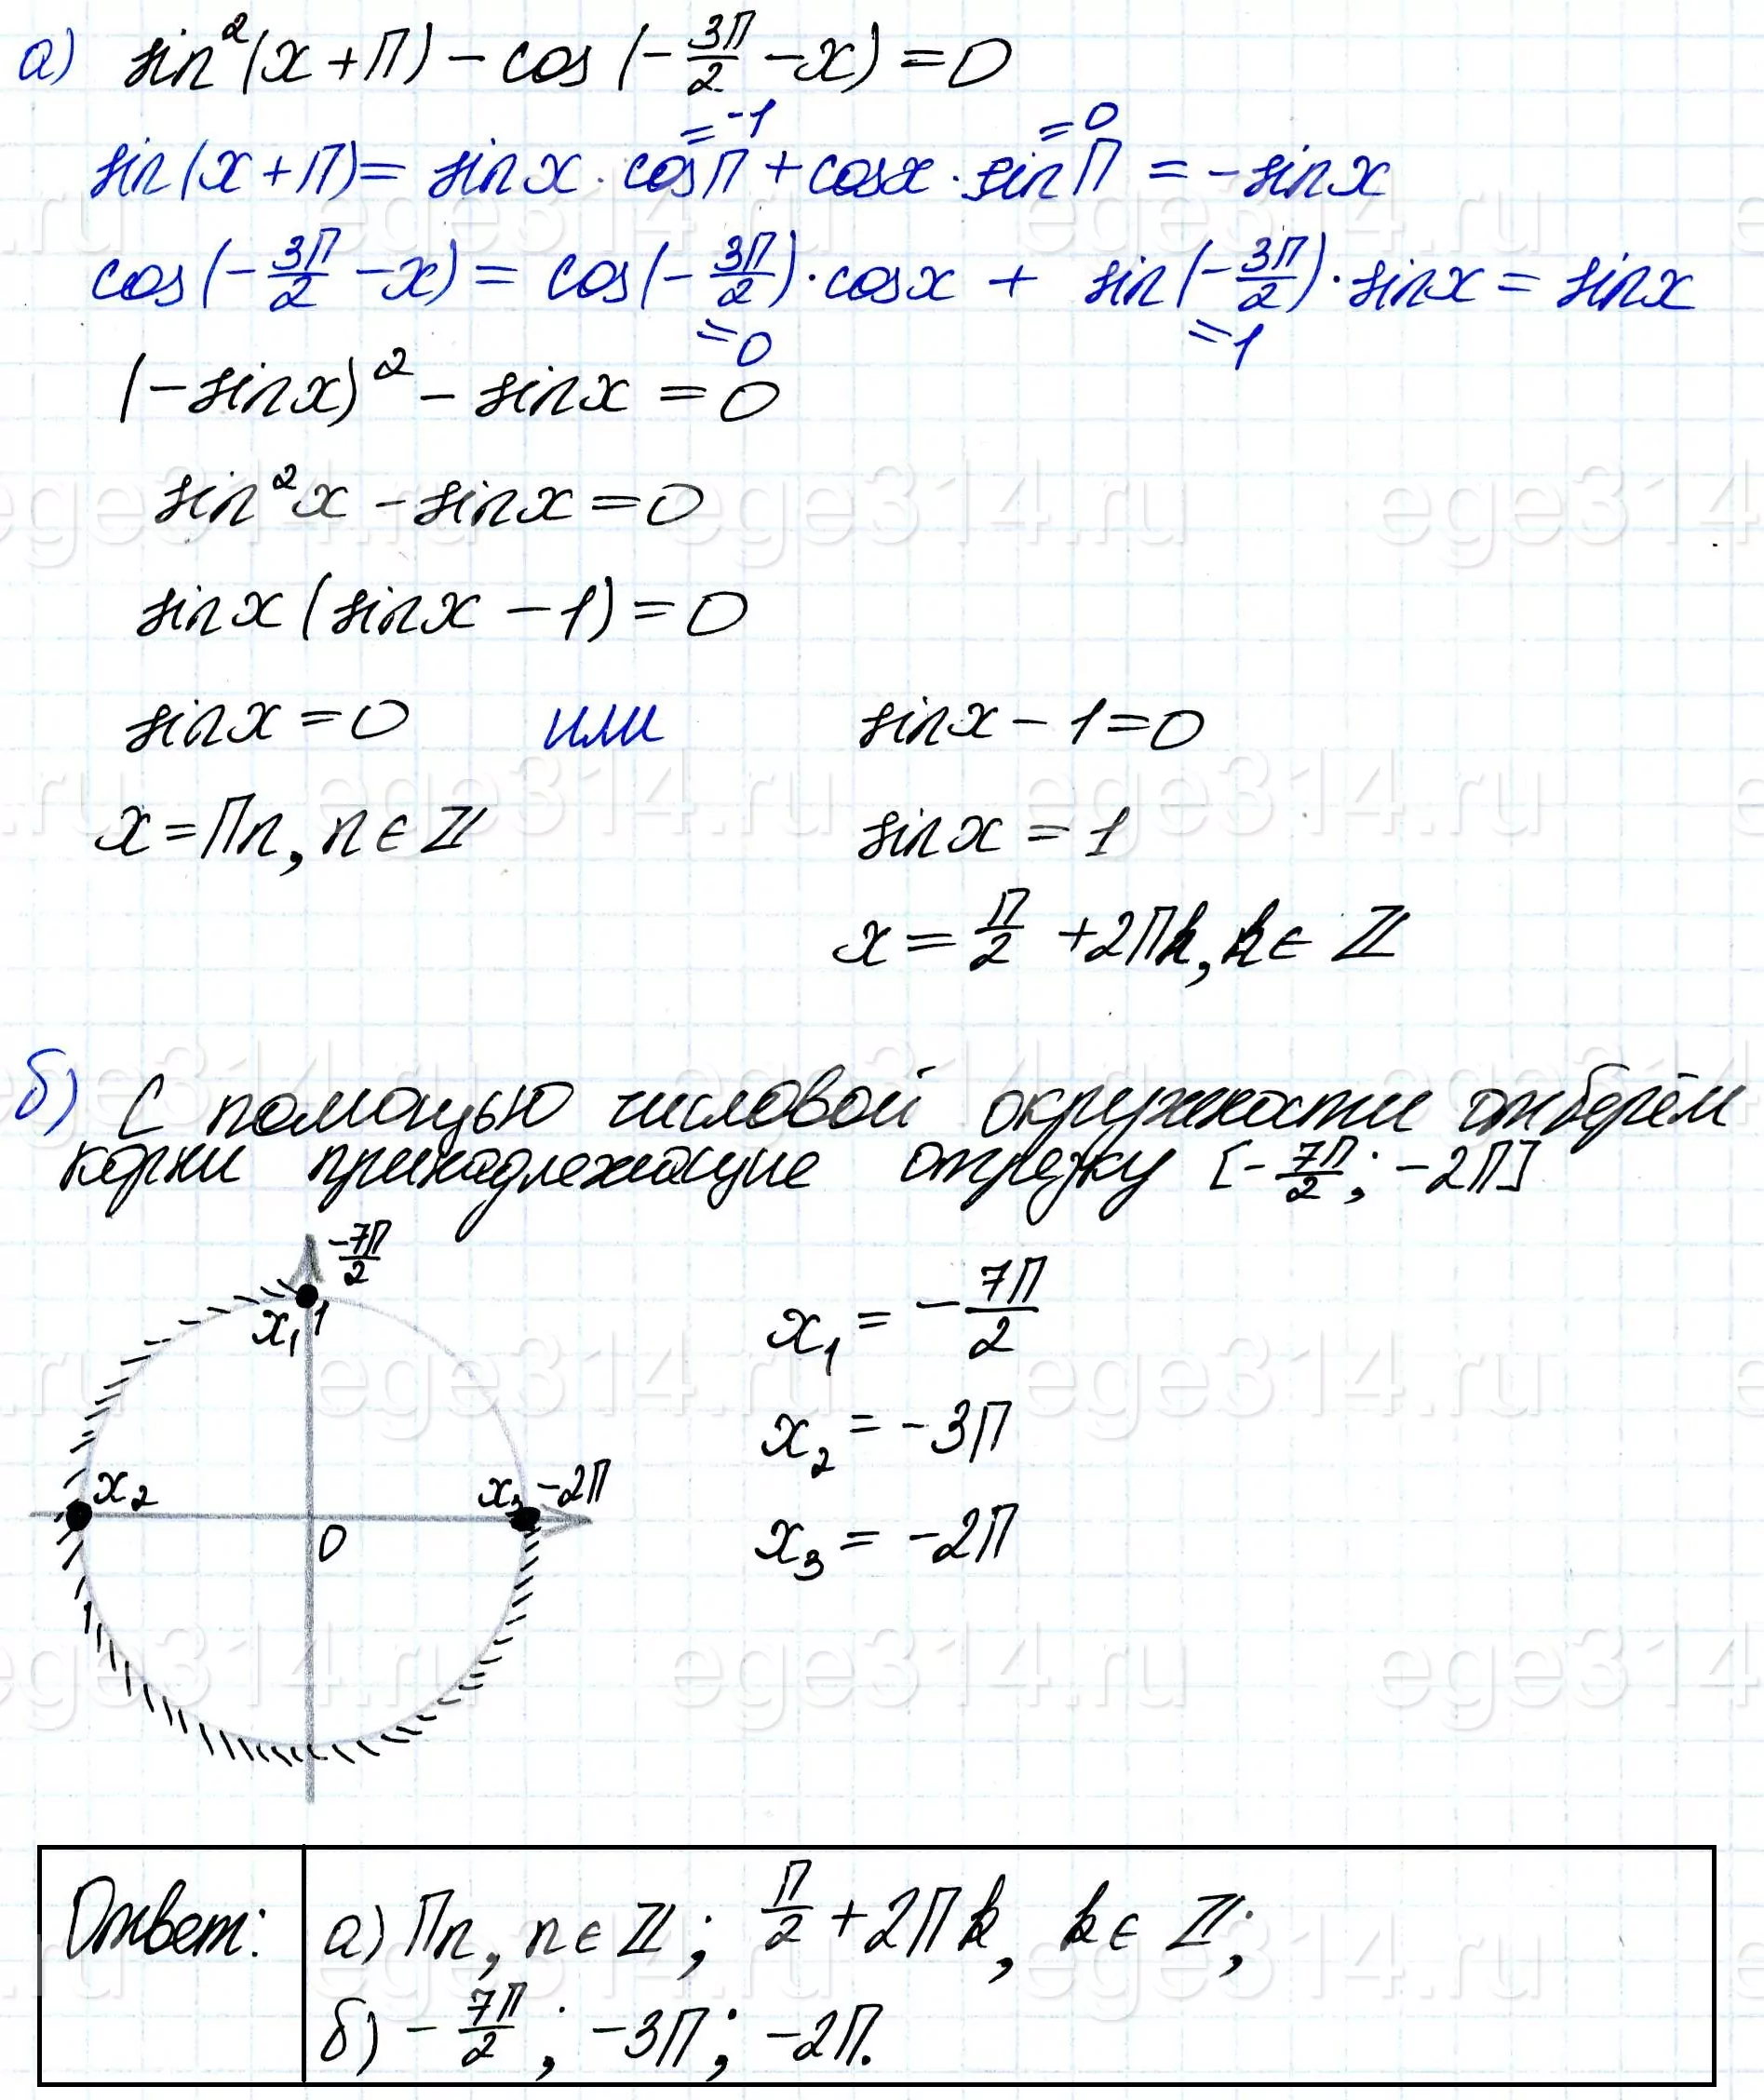 а) sin²(x+П) – cos(–3П/2 –x) = 0
=-1 =0
sin(x+П)= sinx · cosП + cosx · sinП = –sinx
cos(–3П/2 –x) = cos(–3П/2)·cosx + sin(–3П/2)·sinx = sinx
=0 =1
(–sinx)² – sinx = 0
sin²x – sinx = 0
sinx(sinx – 1) = 0
sinx = 0 или sinx – 1 = 0
x = Пn, n ∈ ℤ sinx = 1
x = П/2 + 2Пk, k ∈ ℤ
б) С помощью числовой окружности отберём
корни принадлежащие отрезку [-7П/2; -2П]
-7П/2
x₁ 1
x₁ = –7П/2
x₂ = -3П
x₂ x₃ -2П
0
x₃ = -2П
Ответ: а) Пn, n ∈ ℤ; П/2 + 2Пk, k ∈ ℤ;
б) –7П/2; –3П; –2П.
ege314.ru